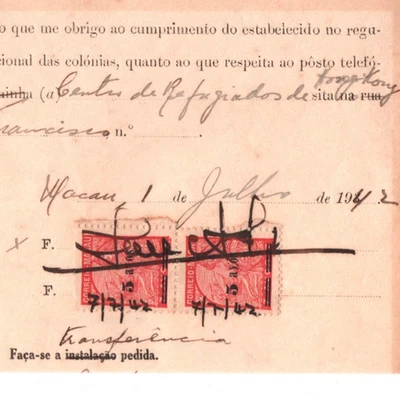 o que me obrigo ao cumprimento do estabelecido no regu-
cional das colónias, quanto ao que respeita ao pôsto telefó-
(a) Centro de Refugiados de Hong Kong sita na rua
Francisco n.º
Macau, 1 de Julho de 1942
x F.
CORREIO MACAU 5 CORREIO MACAU 5
F.
7/7/42 7/7/42
transferência
Faça-se a instalação pedida.